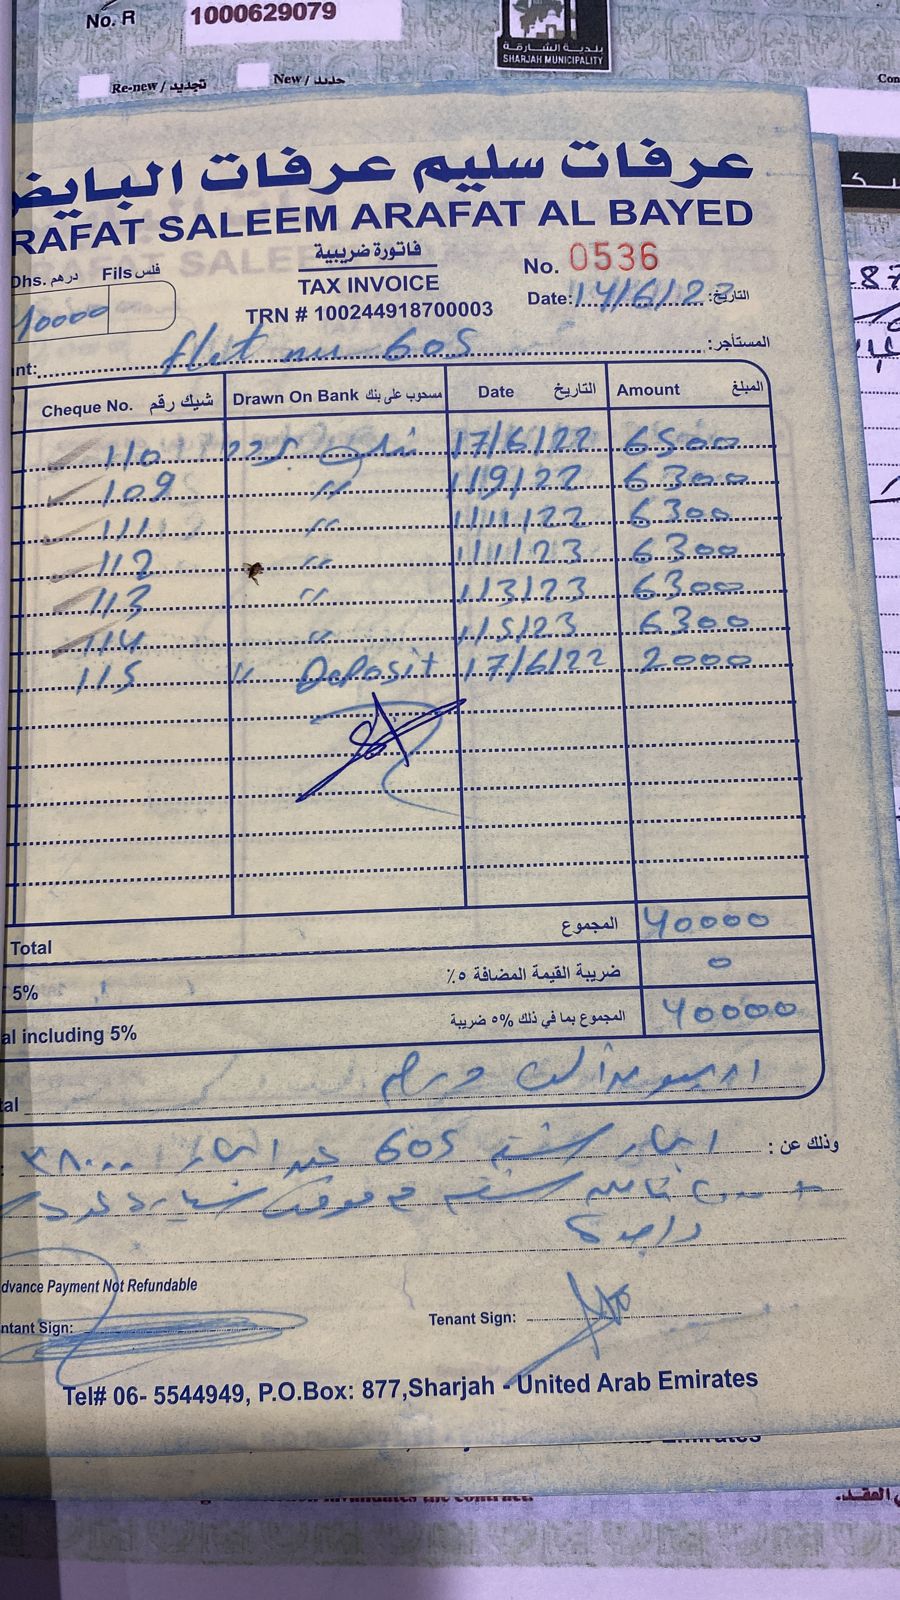 No. R 1000629079
بلدية الشارقة
SHARJAH MUNICIPALITY
Re-new / تجديد New / جديد
Con
عرفات سليم عرفات البايض
RAFAT SALEEM ARAFAT AL BAYED
فاتورة ضريبية
TAX INVOICE
TRN # 100244918700003
Dhs. درهم Fils فلس
40000
No. 0536
Date: 14/6/22 التاريخ:
nt: flet nu 605 المستأجر:
Cheque No. شيك رقم Drawn On Bank مسحوب على بنك Date التاريخ Amount المبلغ
110 17/6/22 6500
109 " 1/9/22 6300
111 " 1/11/22 6300
112 " 1/1/23 6300
113 " 1/3/23 6300
114 " 1/5/23 6300
115 " Deposit 17/6/22 2000
Total المجموع 40000
5% ضريبة القيمة المضافة ٥٪ 0
al including 5% المجموع بما في ذلك 5% ضريبة 40000
tal اربعون الف درهم
وذلك عن : ايجار شقة 605 ٣٨٠٠٠
واحدة
dvance Payment Not Refundable
ntant Sign: Tenant Sign:
Tel# 06- 5544949, P.O.Box: 877,Sharjah - United Arab Emirates